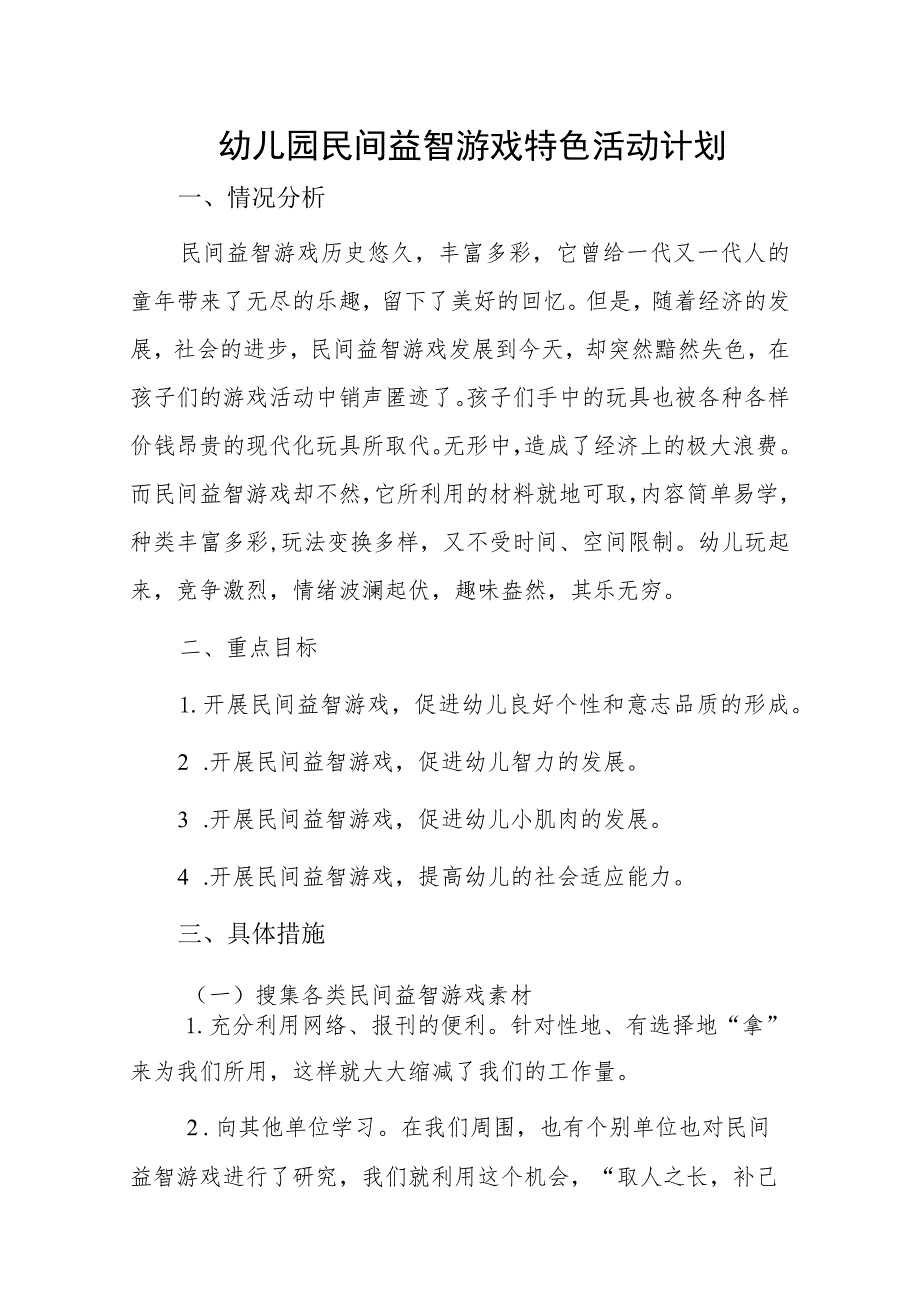 幼儿园民间益智游戏特色活动计划
一、情况分析
民间益智游戏历史悠久，丰富多彩，它曾给一代又一代人的
童年带来了无尽的乐趣，留下了美好的回忆。但是，随着经济的发
展，社会的进步，民间益智游戏发展到今天，却突然黯然失色，在
孩子们的游戏活动中销声匿迹了。孩子们手中的玩具也被各种各样
价钱昂贵的现代化玩具所取代。无形中，造成了经济上的极大浪费。
而民间益智游戏却不然，它所利用的材料就地可取，内容简单易学，
种类丰富多彩,玩法变换多样，又不受时间、空间限制。幼儿玩起
来，竞争激烈，情绪波澜起伏，趣味盎然，其乐无穷。
二、重点目标
1.开展民间益智游戏，促进幼儿良好个性和意志品质的形成。
2 .开展民间益智游戏，促进幼儿智力的发展。
3 .开展民间益智游戏，促进幼儿小肌肉的发展。
4 .开展民间益智游戏，提高幼儿的社会适应能力。
三、具体措施
（一）搜集各类民间益智游戏素材
1.充分利用网络、报刊的便利。针对性地、有选择地“拿”
来为我们所用，这样就大大缩减了我们的工作量。
2.向其他单位学习。在我们周围，也有个别单位也对民间
益智游戏进行了研究，我们就利用这个机会，“取人之长，补己